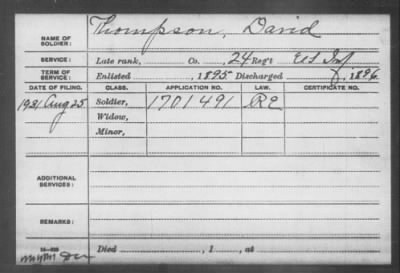 NAME OF SOLDIER: Thompson, David
SERVICE: Late rank, Co. 24 Reg't U S Inf
TERM OF SERVICE: Enlisted , 1895 Discharged , 1896
DATE OF FILING. CLASS. APPLICATION NO. LAW. CERTIFICATE NO.
1921 Aug 25 Soldier, 1701491 RE
Widow,
Minor,
ADDITIONAL SERVICES:
REMARKS:
Died , 1 , at